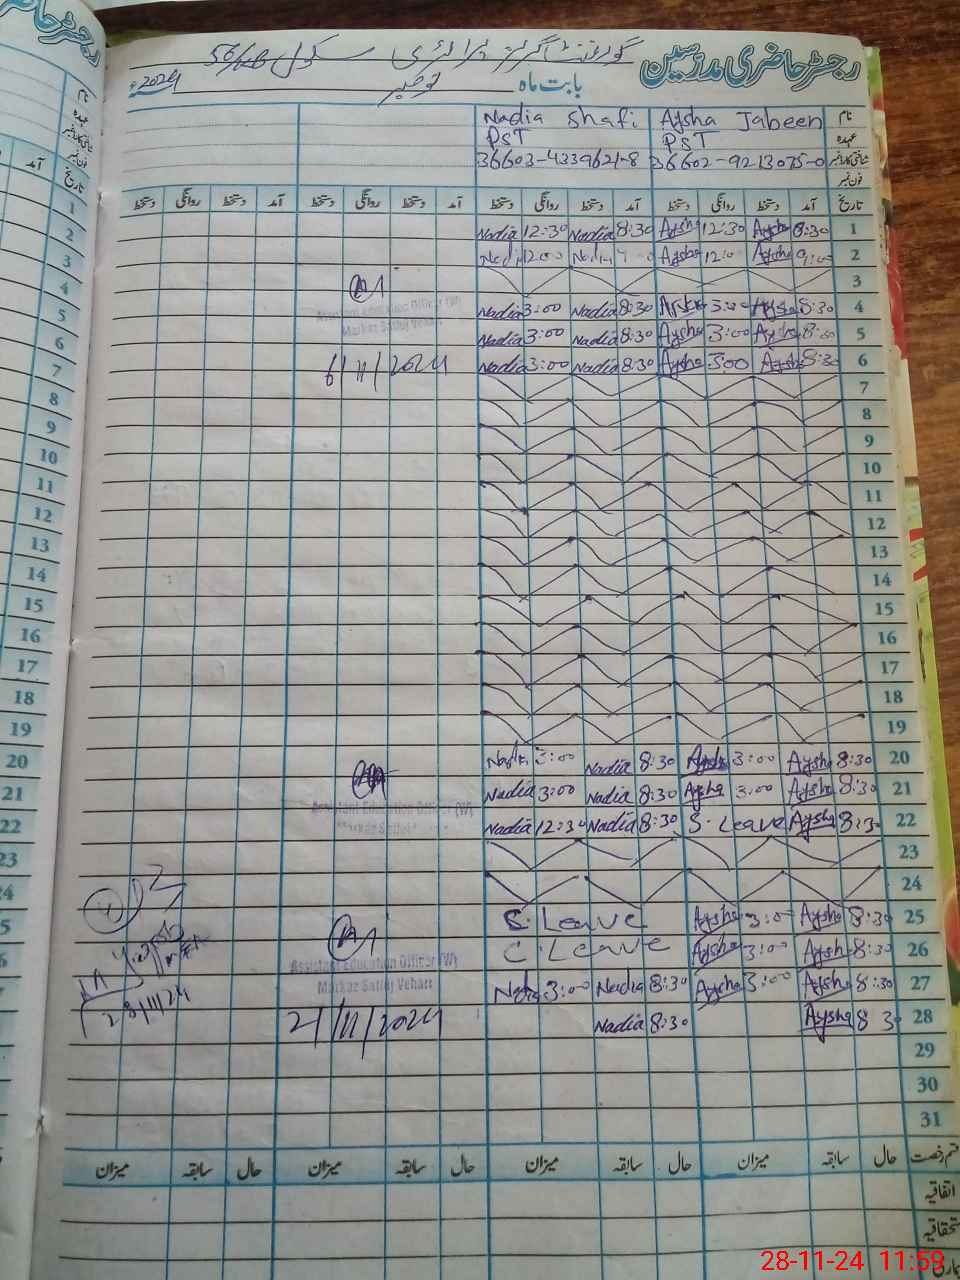 رجسٹر حاضری مدرسین گورنمنٹ گرلز پرائمری سکول 56/WB
بابت ماہ نومبر 2024ء
نام Aysha Jabeen Nadia Shafi
عہدہ PST PST
شناختی کارڈ نمبر 36602-9213075-0 36603-4339621-8
فون نمبر
تاریخ آمد دستخط روانگی دستخط آمد دستخط روانگی دستخط آمد دستخط روانگی دستخط آمد دستخط روانگی دستخط
1 8:30 Aysha 12:30 Aysha 8:30 Nadia 12:30 Nadia
2 9:00 Aysha 12:00 Aysha Nadia 12:00 Nadia
3
4 8:30 Aysha 3:00 Aysha 8:30 Nadia 3:00 Nadia
Assistant Education Officer (W)
Markaz Satluj Vehari
5 8:30 Aysha 3:00 Aysha 8:30 Nadia 3:00 Nadia
6 8:30 Aysha 3:00 Aysha 8:30 Nadia 3:00 Nadia 6/11/2024
7
8
9
10
11
12
13
14
15
16
17
18
19
20 8:30 Aysha 3:00 Aysha 8:30 Nadia 3:00 Nadia
21 8:30 Aysha 3:00 Aysha 8:30 Nadia 3:00 Nadia
Assistant Education Officer (W)
22 8:30 Aysha S. Leave 8:30 Nadia 12:30 Nadia
Markaz Satluj
23
24
25 8:30 Aysha 3:00 Aysha S. Leave
26 8:30 Aysha 3:00 Aysha C. Leave
Assistant Education Officer (W)
Markaz Satluj Vehari
27 8:30 Aysha 3:00 Aysha 8:30 Nadia 3:00 Nadia
28 8:30 Aysha 8:30 Nadia 21/11/2024
28/11/24
29
30
31
قسم رخصت حال سابقہ میزان حال سابقہ میزان حال سابقہ میزان حال سابقہ میزان
اتفاقیہ
استحقاقیہ
28-11-24 11:59